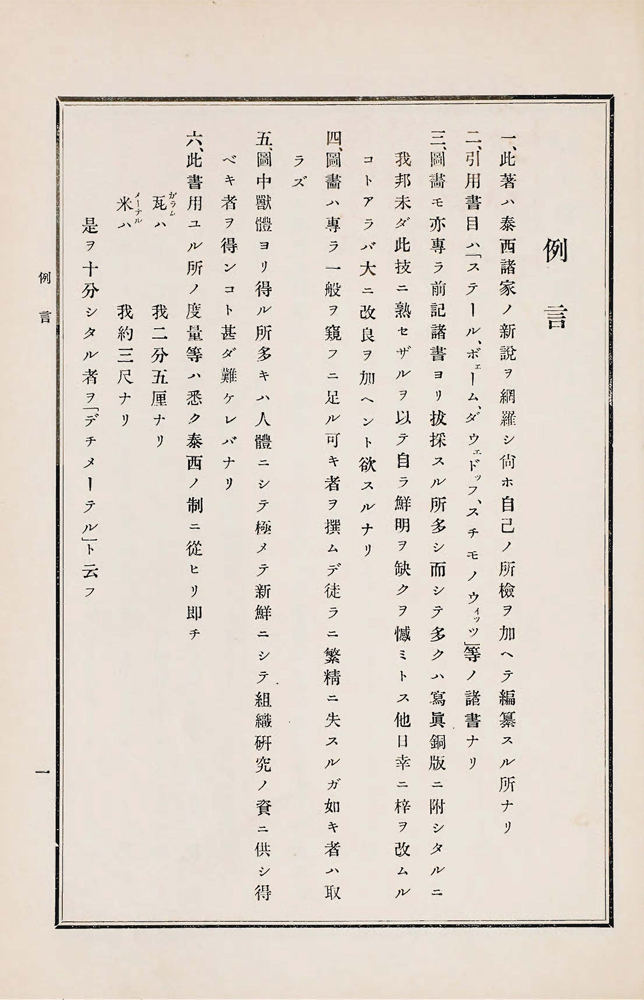 例言
一、此著ハ泰西諸家ノ新說ヲ網羅シ尙ホ自己ノ所檢ヲ加ヘテ編纂スル所ナリ
二、引用書目ハ「ステール、ボェーム、ダウェドッフ、スチモノウィッツ」等ノ諸書ナリ
三、圖畫モ亦專ラ前記諸書ヨリ拔採スル所多シ而シテ多クハ寫眞銅版ニ附シタルニ
我邦未ダ此技ニ熟セザルヲ以テ自ラ鮮明ヲ缺クヲ憾ミトス他日幸ニ梓ヲ改ムル
コトアラバ大ニ改良ヲ加ヘント欲スルナリ
四、圖畫ハ專ラ一般ヲ窺フニ足ル可キ者ヲ撰ムデ徒ラニ繁精ニ失スルガ如キ者ハ取
ラズ
五、圖中獸體ヨリ得ル所多キハ人體ニシテ極メテ新鮮ニシテ組織硏究ノ資ニ供シ得
ベキ者ヲ得ンコト甚ダ難ケレバナリ
六、此書用ユル所ノ度量等ハ悉ク泰西ノ制ニ從ヒリ卽チ
瓦ハ 我二分五厘ナリ
ガラム
米ハ 我約三尺ナリ
メーテル
是ヲ十分シタル者ヲ「デチメーテル」ト云フ
例言
一